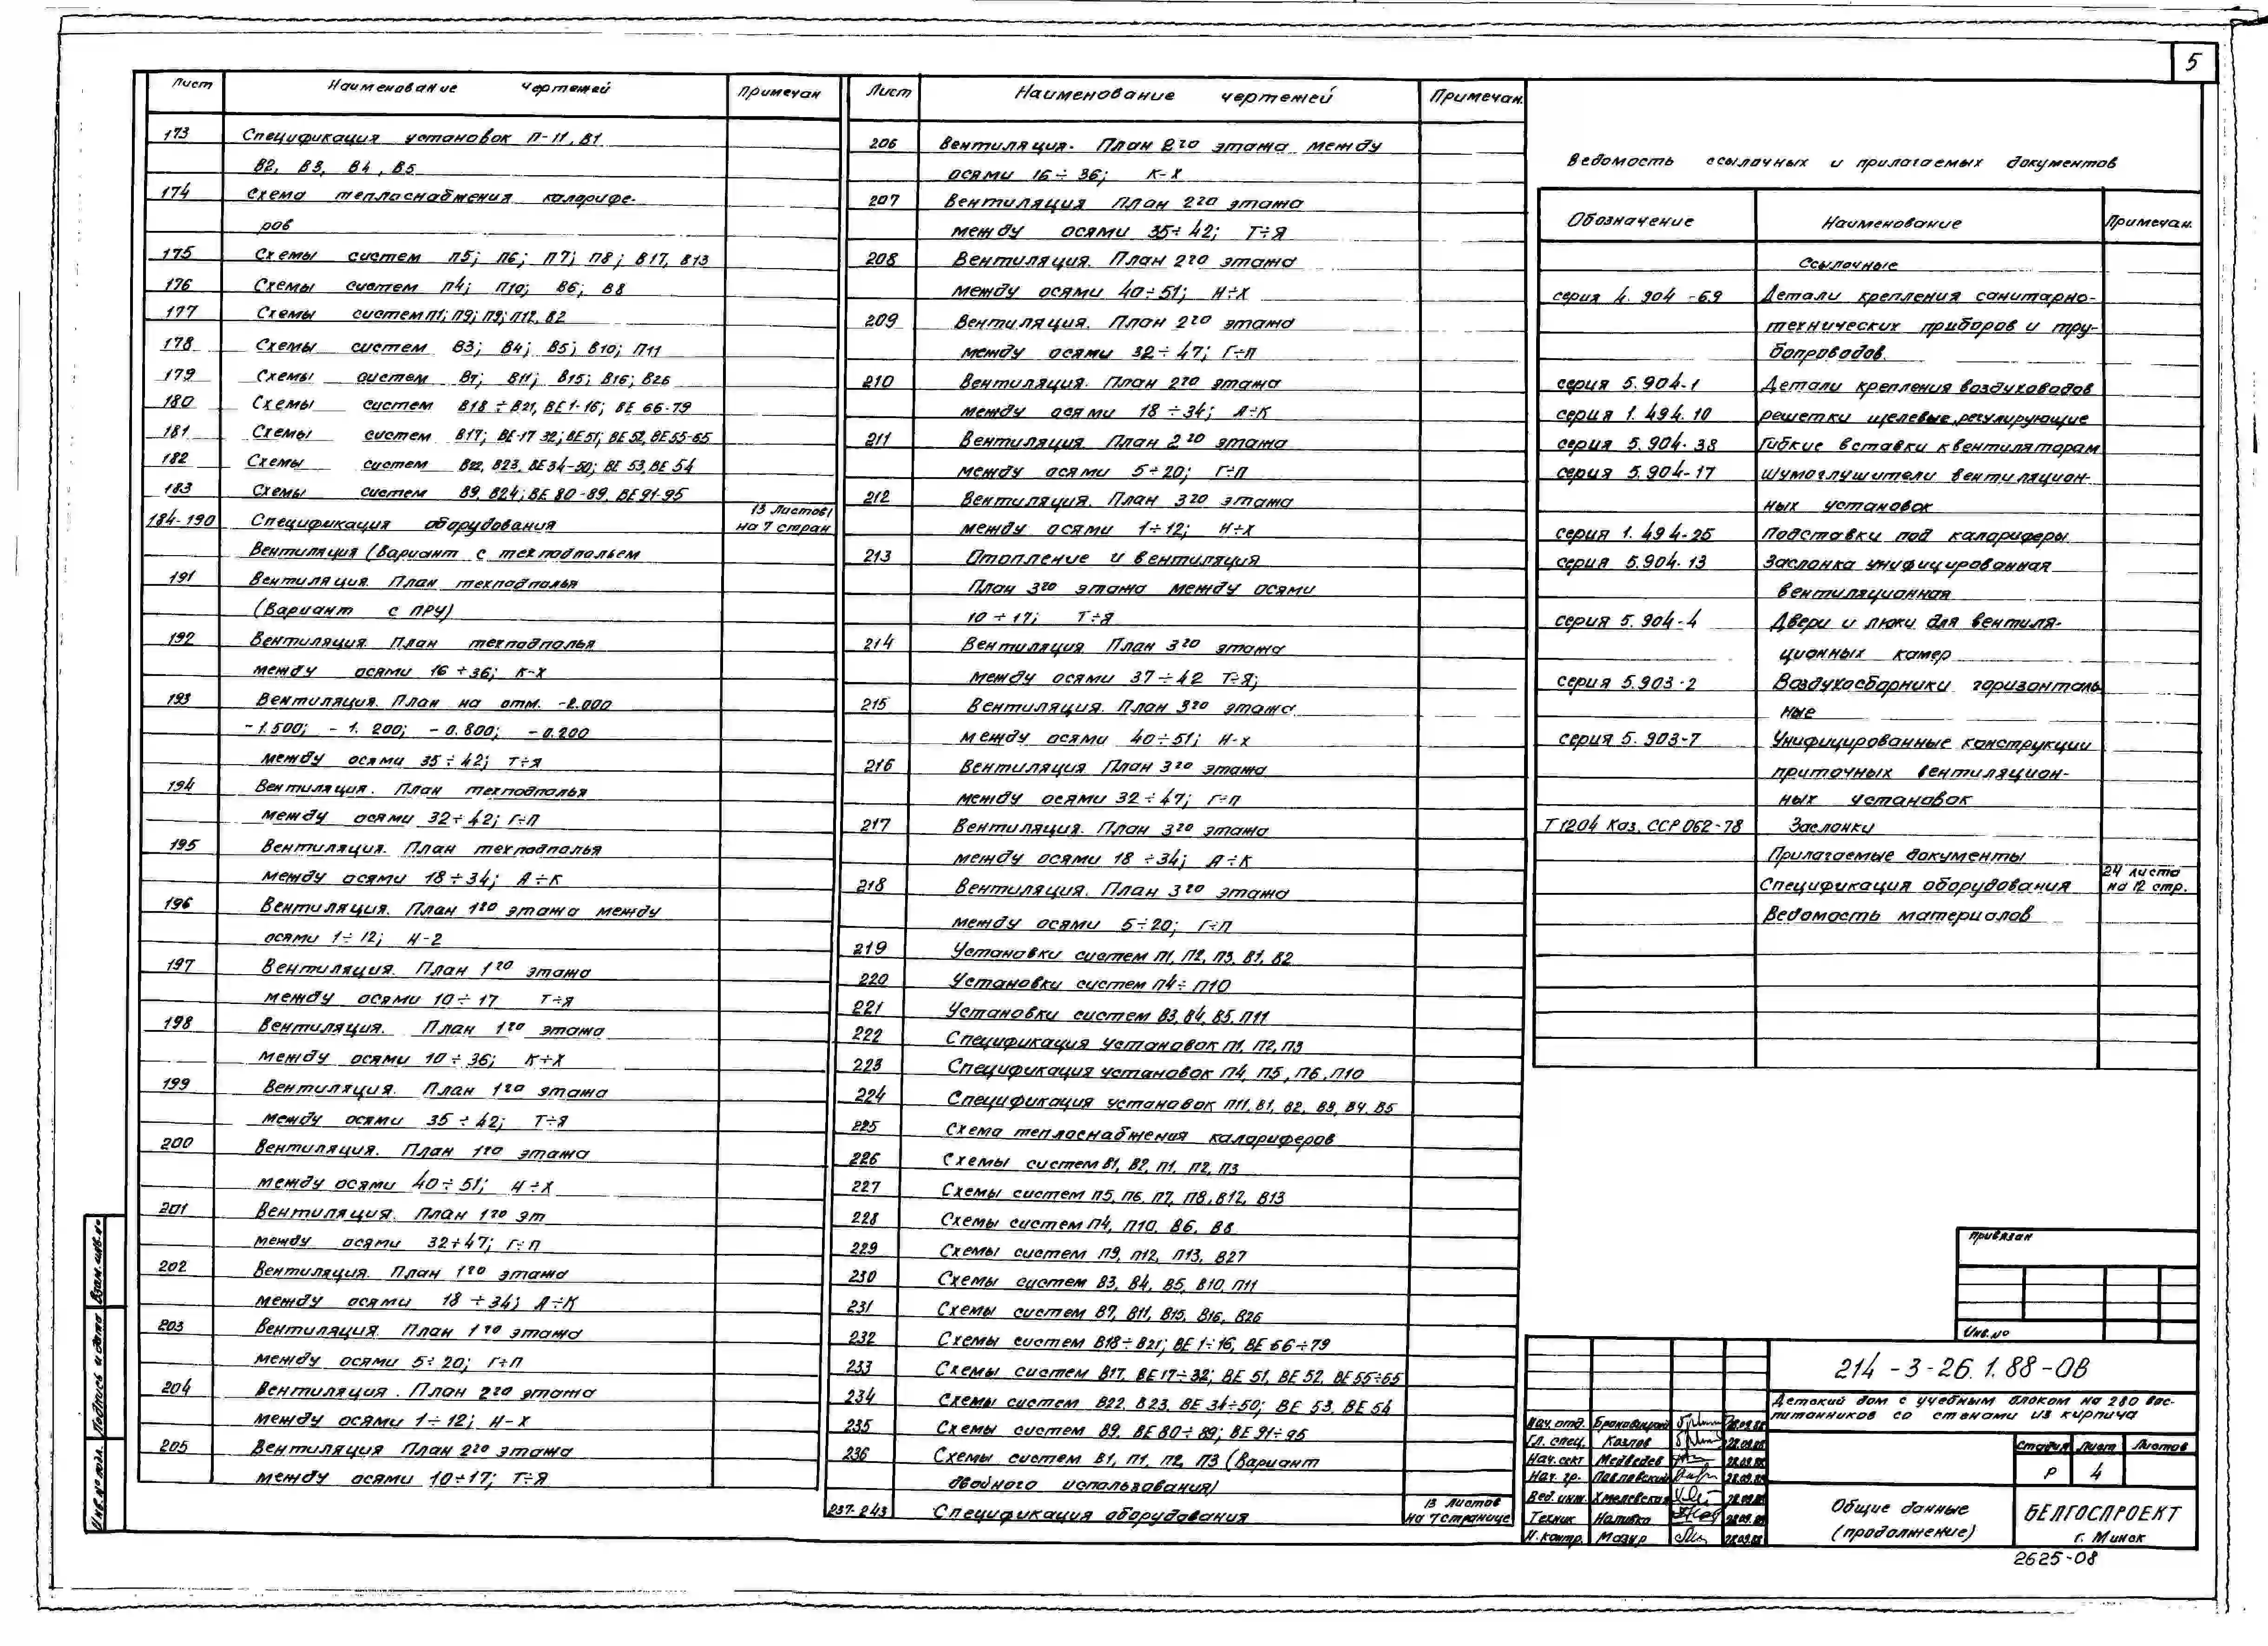 5
Лист Наименование чертежей Примечан
173 Спецификация установок П-11, В1
В2, В3, В4, В5
174 Схема теплоснабжения калорифе-
ров
175 Схемы систем П5; П6; П7; П8; В17, В13
176 Схемы систем П4; П10; В6; В8
177 Схемы систем П1; П9; П3; П12, В2
178 Схемы систем В3; В4; В5; В10; П11
179 Схемы систем В7; В11; В15; В16; В26
180 Схемы систем В18÷В21, ВЕ1-16; ВЕ 66-79
181 Схемы систем В17; ВЕ-17 32; ВЕ51; ВЕ52, ВЕ55-65
182 Схемы систем В22, В23, ВЕ34-50; ВЕ 53, ВЕ 54
183 Схемы систем В9, В24; ВЕ 80-89, ВЕ91-95
184-190 Спецификация оборудования 13 листов на 7 стран
Вентиляция (Вариант с техподпольем
191 Вентиляция. План техподполья
(Вариант с ПРУ)
192 Вентиляция. План техподполья
между осями 16÷36; К-Х
193 Вентиляция. План на отм. -2.000
-1.500; -1.200; -0.800; -0.200
между осями 35÷42; Т÷Я
194 Вентиляция. План техподполья
между осями 32÷42; Г÷П
195 Вентиляция. План техподполья
между осями 18÷34; А÷К
196 Вентиляция. План 1го этажа между
осями 1÷12; Н-2
197 Вентиляция. План 1го этажа
между осями 10÷17 Т÷Я
198 Вентиляция. План 1го этажа
между осями 10÷36; К÷Х
199 Вентиляция. План 1го этажа
между осями 35÷42; Т÷Я
200 Вентиляция. План 1го этажа
между осями 40÷51; Н÷Х
201 Вентиляция. План 1го эт
между осями 32÷47; Г÷П
202 Вентиляция. План 1го этажа
между осями 18÷34; А÷К
203 Вентиляция. План 1го этажа
между осями 5÷20; Г÷П
204 Вентиляция. План 2го этажа
между осями 1÷12; Н-Х
205 Вентиляция План 2го этажа
между осями 10÷17; Т÷Я
Лист Наименование чертежей Примечан.
206 Вентиляция. План 2го этажа между
осями 16÷36; К-Х
207 Вентиляция План 2го этажа
между осями 35÷42; Т÷Я
208 Вентиляция. План 2го этажа
между осями 40÷51; Н÷Х
209 Вентиляция. План 2го этажа
между осями 32÷47; Г÷П
210 Вентиляция. План 2го этажа
между осями 18÷34; А÷К
211 Вентиляция. План 2го этажа
между осями 5÷20; Г÷П
212 Вентиляция. План 3го этажа
между осями 1÷12; Н÷Х
213 Отопление и вентиляция
План 3го этажа между осями
10÷17; Т÷Я
214 Вентиляция План 3го этажа
между осями 37÷42 Т÷Я;
215 Вентиляция. План 3го этажа
между осями 40÷51; Н-Х
216 Вентиляция План 3го этажа
между осями 32÷47; Г÷П
217 Вентиляция. План 3го этажа
между осями 18÷34; А÷К
218 Вентиляция. План 3го этажа
между осями 5÷20; Г÷П
219 Установки систем П1, П2, П3, В1, В2
220 Установки систем П4÷П10
221 Установки систем В3, В4, В5, П11
222 Спецификация установок П1, П2, П3
223 Спецификация установок П4, П5, П6, П10
224 Спецификация установок П11, В1, В2, В3, В4, В5
225 Схема теплоснабжения калориферов
226 Схемы систем В1, В2, П1, П2, П3
227 Схемы систем П5, П6, П7, П8, В12, В13
228 Схемы систем П4, П10, В6, В8
229 Схемы систем П9, П12, П13, В27
230 Схемы систем В3, В4, В5, В10, П11
231 Схемы систем В7, В11, В15, В16, В26
232 Схемы систем В18÷В21; ВЕ 1÷16, ВЕ 66÷79
233 Схемы систем В17, ВЕ17÷32; ВЕ 51, ВЕ 52, ВЕ55÷65
234 Схемы систем В22, В23, ВЕ 34÷50; ВЕ 53, ВЕ 54
235 Схемы систем В9, ВЕ80÷89; ВЕ91÷95
236 Схемы систем В1, П1, П2, П3 (Вариант
двойного использования)
237-243 Спецификация оборудования 13 листов на 7 странице
Ведомость ссылочных и прилагаемых документов
Обозначение Наименование Примечан.
Ссылочные
серия 4.904-69 Детали крепления санитарно-
технических приборов и тру-
бопроводов.
серия 5.904-1 Детали крепления воздуховодов
серия 1.494.10 решетки щелевые, регулирующие
серия 5.904-38 Гибкие вставки к вентиляторам
серия 5.904-17 Шумоглушители вентиляцион-
ных установок
серия 1.494-25 Подставки под калориферы
серия 5.904-13 Заслонка унифицированная
вентиляционная
серия 5.904-4 Двери и люки для вентиля-
ционных камер
серия 5.903-2 Воздухосборники горизонталь
ные
серия 5.903-7 Унифицированные конструкции
приточных вентиляцион-
ных установок
Т 1204 Каз. ССР 062-78 Заслонки
Прилагаемые документы
Спецификация оборудования 24 листа на 12 стр.
Ведомость материалов
Привязан
Инв.№
214-3-26.1.88-ОВ
Детский дом с учебным блоком на 280 вос-
питанников со стенами из кирпича
Нач. отд. 28.09.88
Гл. спец. Козлов 28.09.88
Нач. сект Медведев 28.09.88
Нач. гр. Павловский 28.09.88
Вед. инж. Хмелевская 28.09.88
Техник Наливко 28.09.88
Н. контр. Мазур 28.09.88
Стадия Лист Листов
Р 4
Общие данные
(продолжение)
БЕЛГОСПРОЕКТ
г. Минск
2625-08
Инв.№ подл. Подпись и дата Взам. инв.№